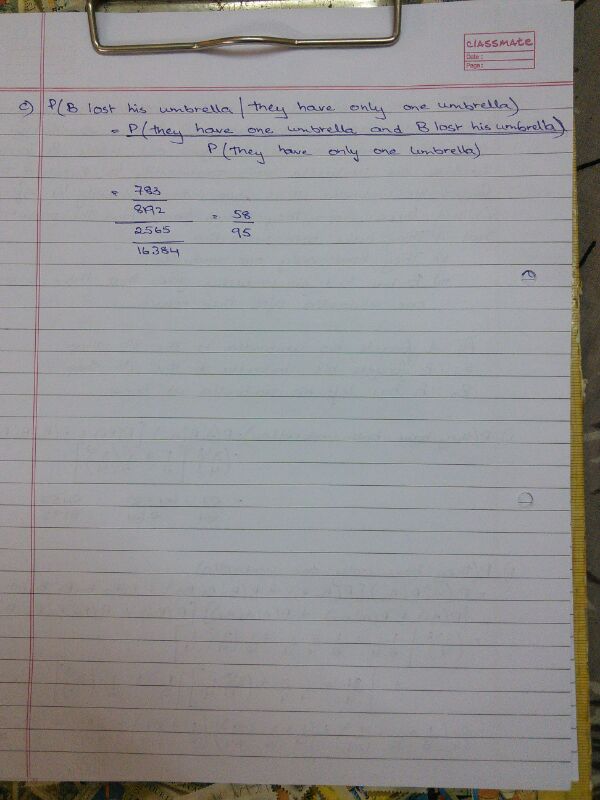 classmate
Date :
Page :
c) P(B lost his umbrella | they have only one umbrella)
= P(they have one umbrella and B lost his umbrella)
P(they have only one umbrella)
= 783
8192
2565
16384
= 58
95